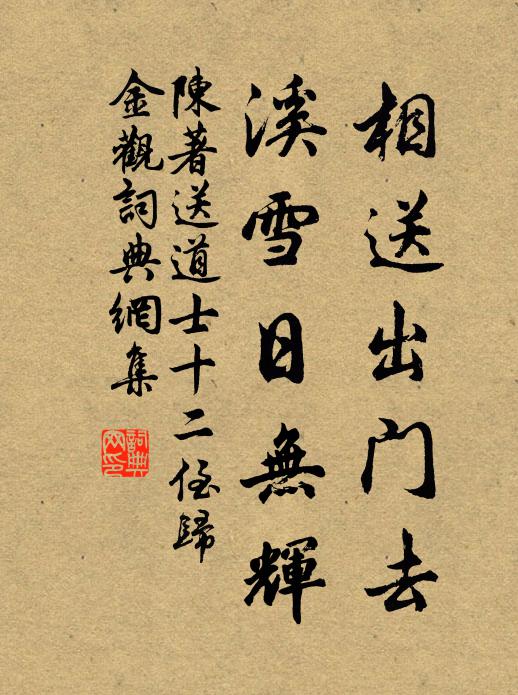 相送出门去
溪雪日無輝
陳著送道士十二侄歸
金觀詞典網集
詞典網印